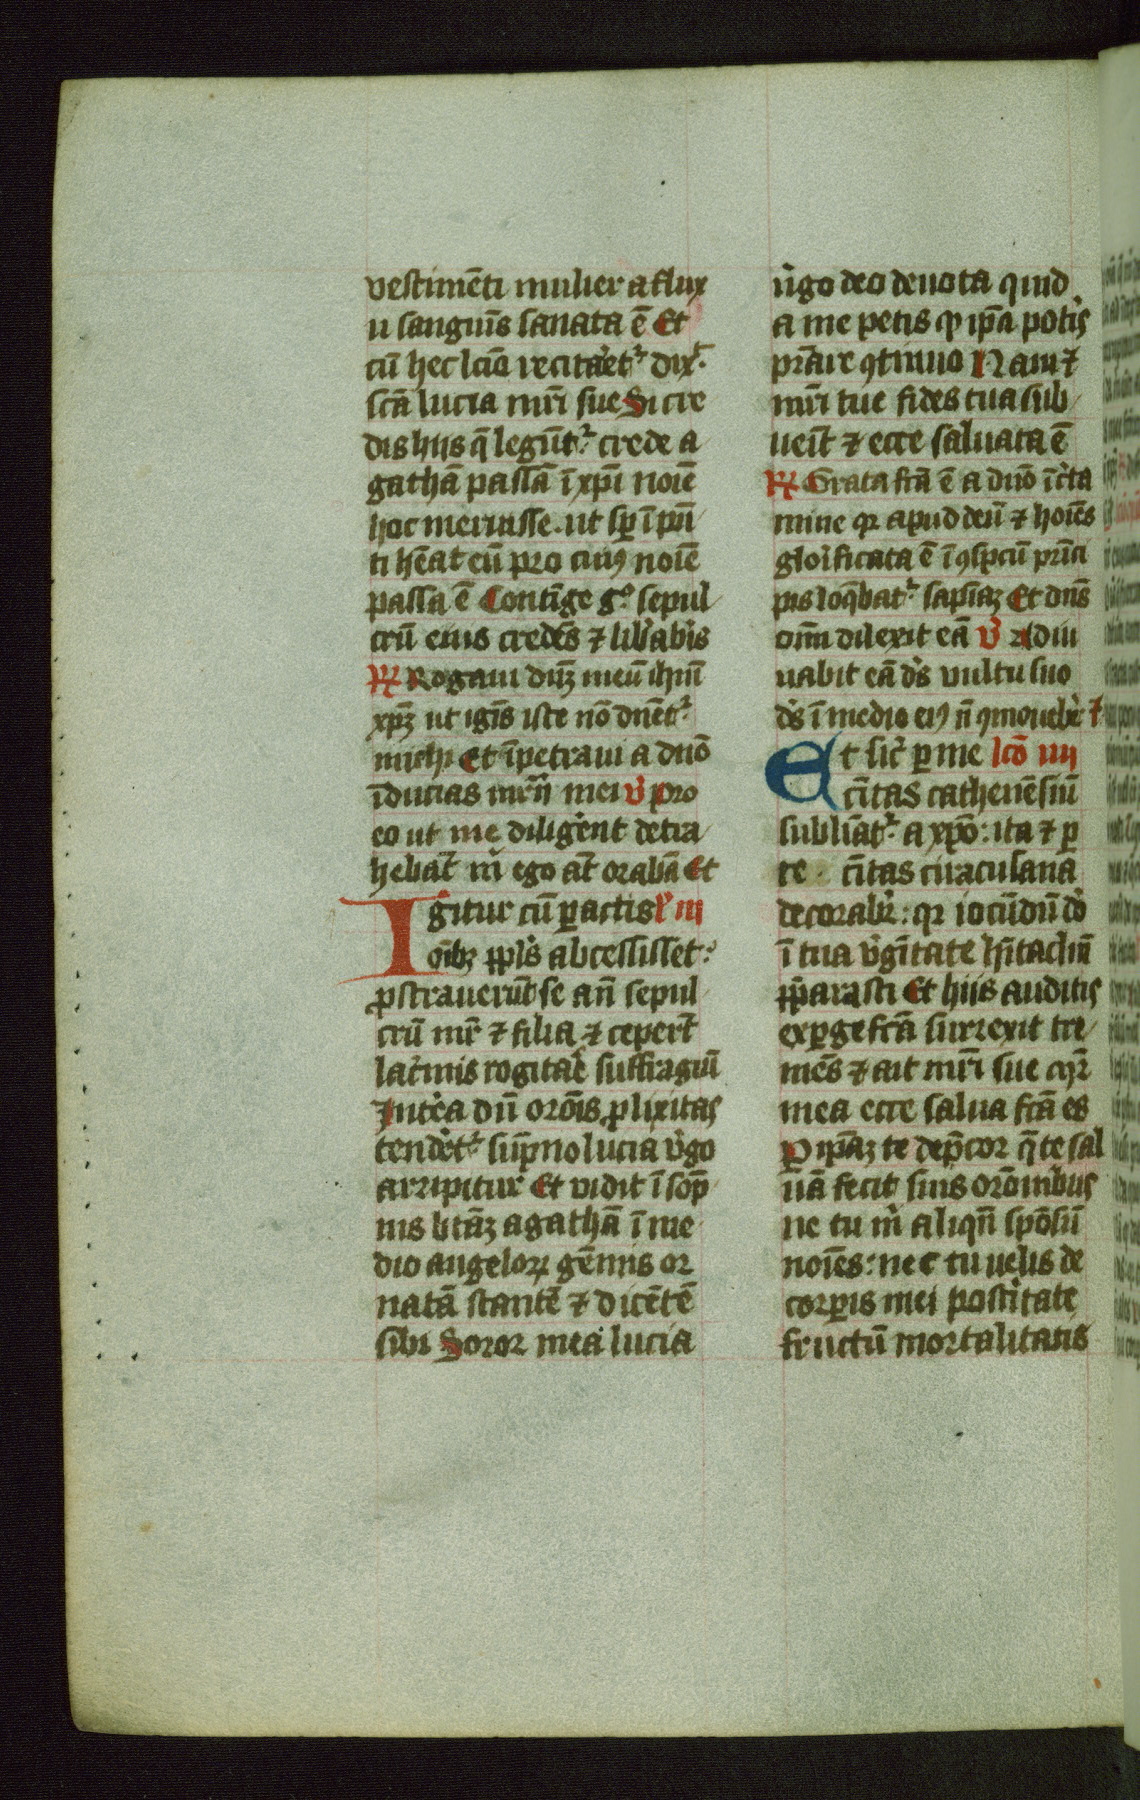 vestimēti mulier a flux
u sanguīs sanata ē Et
cū hec lcīo recitaret᷑ dix̄
scā lucia mr̄i sue Si cre
dis hiis q̄ legūt᷑ crede a
gathā passā ī xp̄i noīe
hoc meruisse. ut sp̄ ī pn̄
ti hēat eū pro cuiꝰ noīe
passa ē Contīge gͦ sepul
crū eius credēs ⁊ libabis
℟ Rogaui dn̄ꝫ meū ihm̄
xp̄ꝫ ut ignīs iste nō dn̄et᷑
michi Et īpetraui a dn̄o
īducias mr̄ii mei ℣ Pro
eo ut me diligerent detra
hebāt m̄ ego aūt orabā Et
Igitur cū ꝑactis lͦ iii
oīb; ppl̄s abcessisset
ꝓstrauerūt se an̄ sepul
crū mr̄ ⁊ filia ⁊ ceperūt
lac̄mis rogitare suffragiū
Intea dū orōis ꝓlixitas
tenderet᷑ sūpno lucia ūgo
arripitur Et vidit ī sōp
nis btāꝫ agathā ī me
dio angeloꝝ gēmis or
natā stantē ⁊ dicētē
sibi Soror mea lucia
ūgo deo deuota quid
a me petis ꝙ ip̄a potis
pr̄are ꝯtinuo Nam ⁊
mr̄i tue fides tua sub
ueīt ⁊ ecce saluata ē
℟ Grata fcā ē a dn̄o ī c̄ta
mine qr apud deū ⁊ hoīes
gloīficata ē ī ꝯspcū prīci
pis loq̄bat᷑ sapīaꝫ Et dn̄s
oīm dilexit eā ℣ Adiu
uabit eā d̄s vultu suo
d̄s ī medio eiꝰ n̄ ꝯmouebr̄ ⁊
Et sic̄ ꝑ me lcō iiii
cītas cathenēsiū
subliāt᷑ a xp̄o: ita ⁊ ꝑ
te cītas ciracusana
decorabr̄: qr iocūdū dō
ī tua v̄gītate hītaclm̄
pp̄arasti Et hiis auditis
exꝑgefcā surrexit tre
mēs ⁊ ait mr̄i sue
mea ecce salua fcā es
P ip̄aꝫ te dep̄cor q̄ te sal
uā fecit suis orōnibus
ne tu m̄ aliqn̄ spōsū
noīes: nec tu uelis de
corꝑis mei post̄itate
fructū mortalitatis